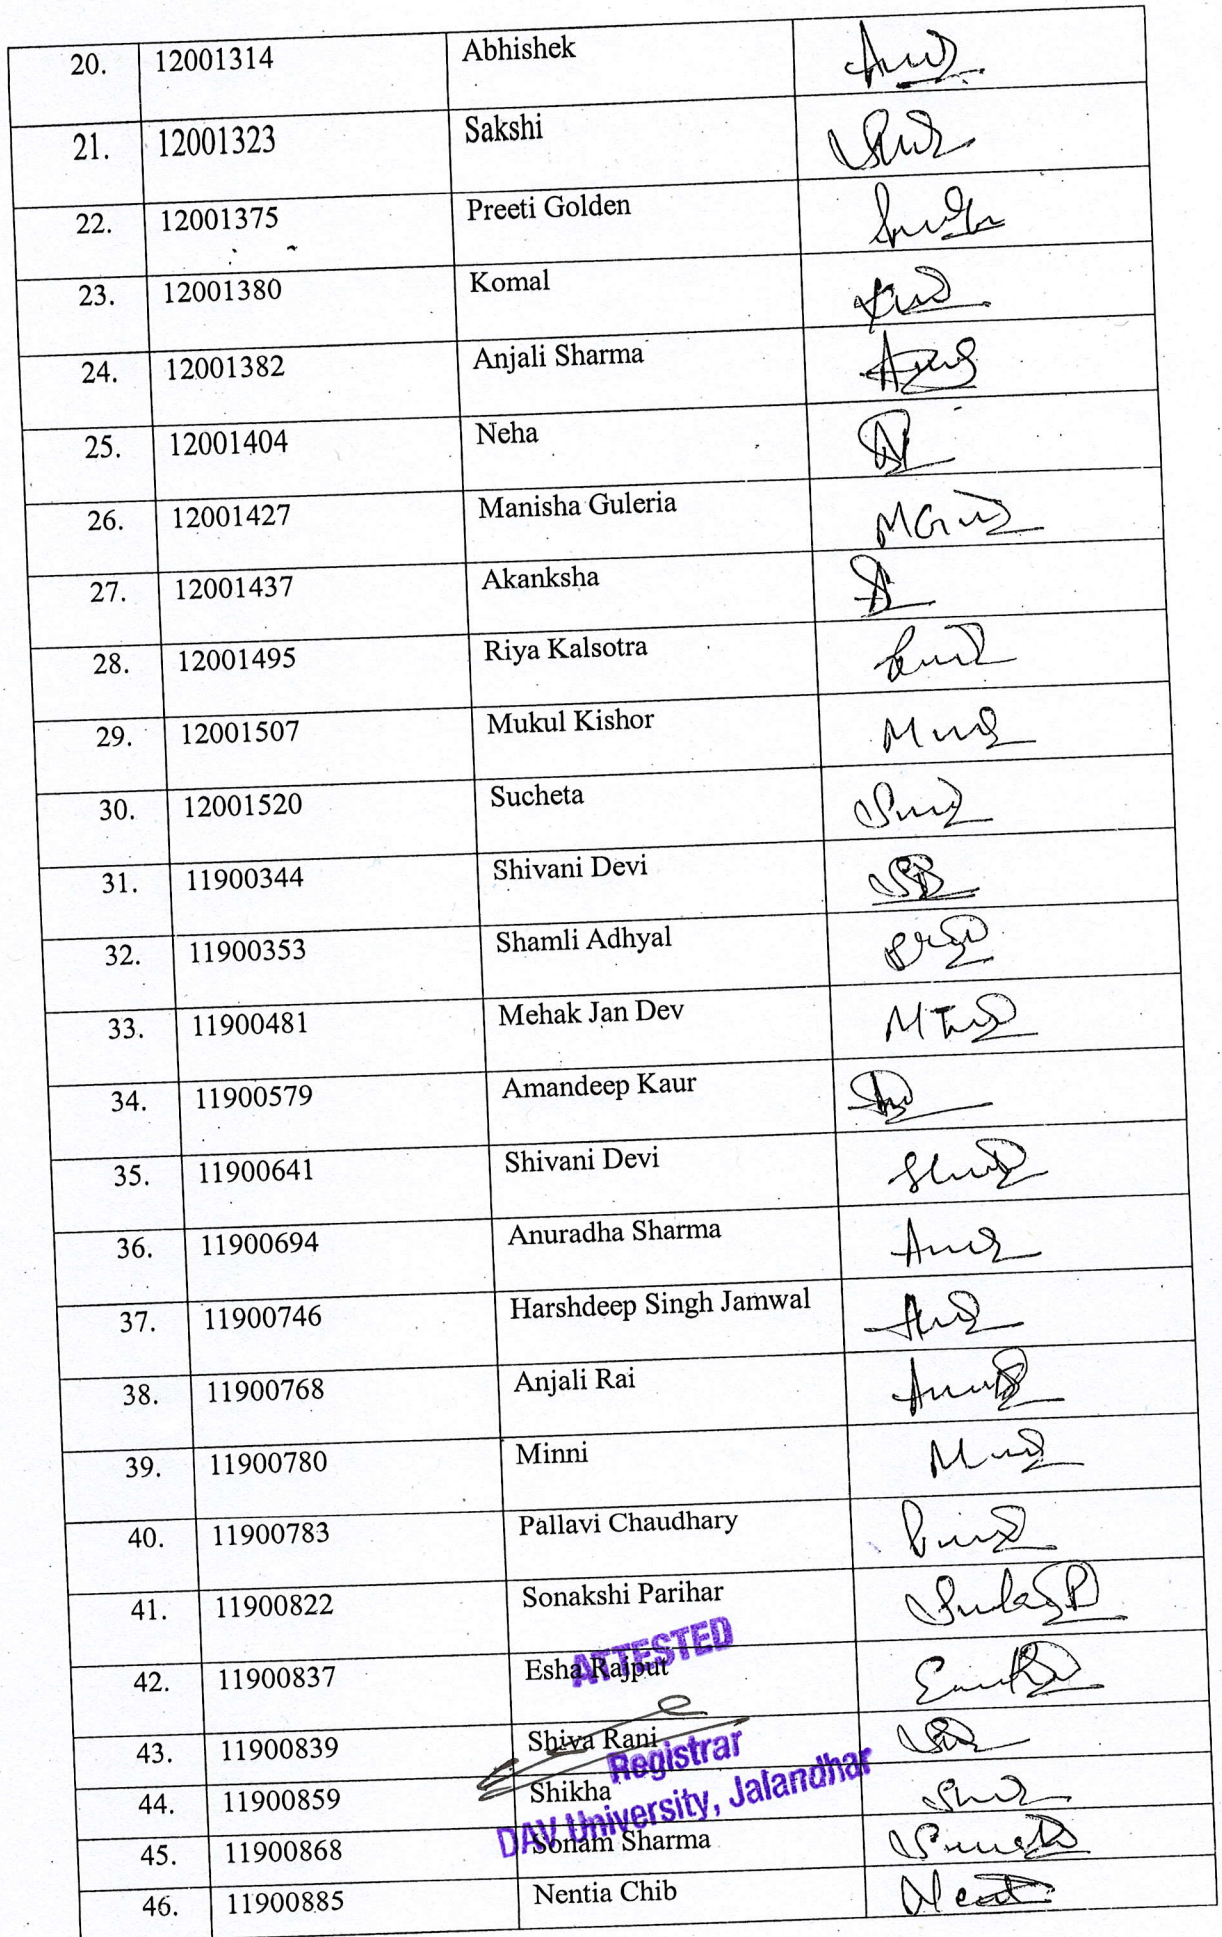 20. 12001314 Abhishek
21. 12001323 Sakshi
22. 12001375 Preeti Golden
23. 12001380 Komal
24. 12001382 Anjali Sharma
25. 12001404 Neha
26. 12001427 Manisha Guleria
27. 12001437 Akanksha
28. 12001495 Riya Kalsotra
29. 12001507 Mukul Kishor
30. 12001520 Sucheta
31. 11900344 Shivani Devi
32. 11900353 Shamli Adhyal
33. 11900481 Mehak Jan Dev
34. 11900579 Amandeep Kaur
35. 11900641 Shivani Devi
36. 11900694 Anuradha Sharma
37. 11900746 Harshdeep Singh Jamwal
38. 11900768 Anjali Rai
39. 11900780 Minni
40. 11900783 Pallavi Chaudhary
41. 11900822 Sonakshi Parihar
ATTESTED
42. 11900837 Esha Rajput
43. 11900839 Shiva Rani
Registrar
44. 11900859 Shikha
DAV University, Jalandhar
45. 11900868 Sonam Sharma
46. 11900885 Nentia Chib